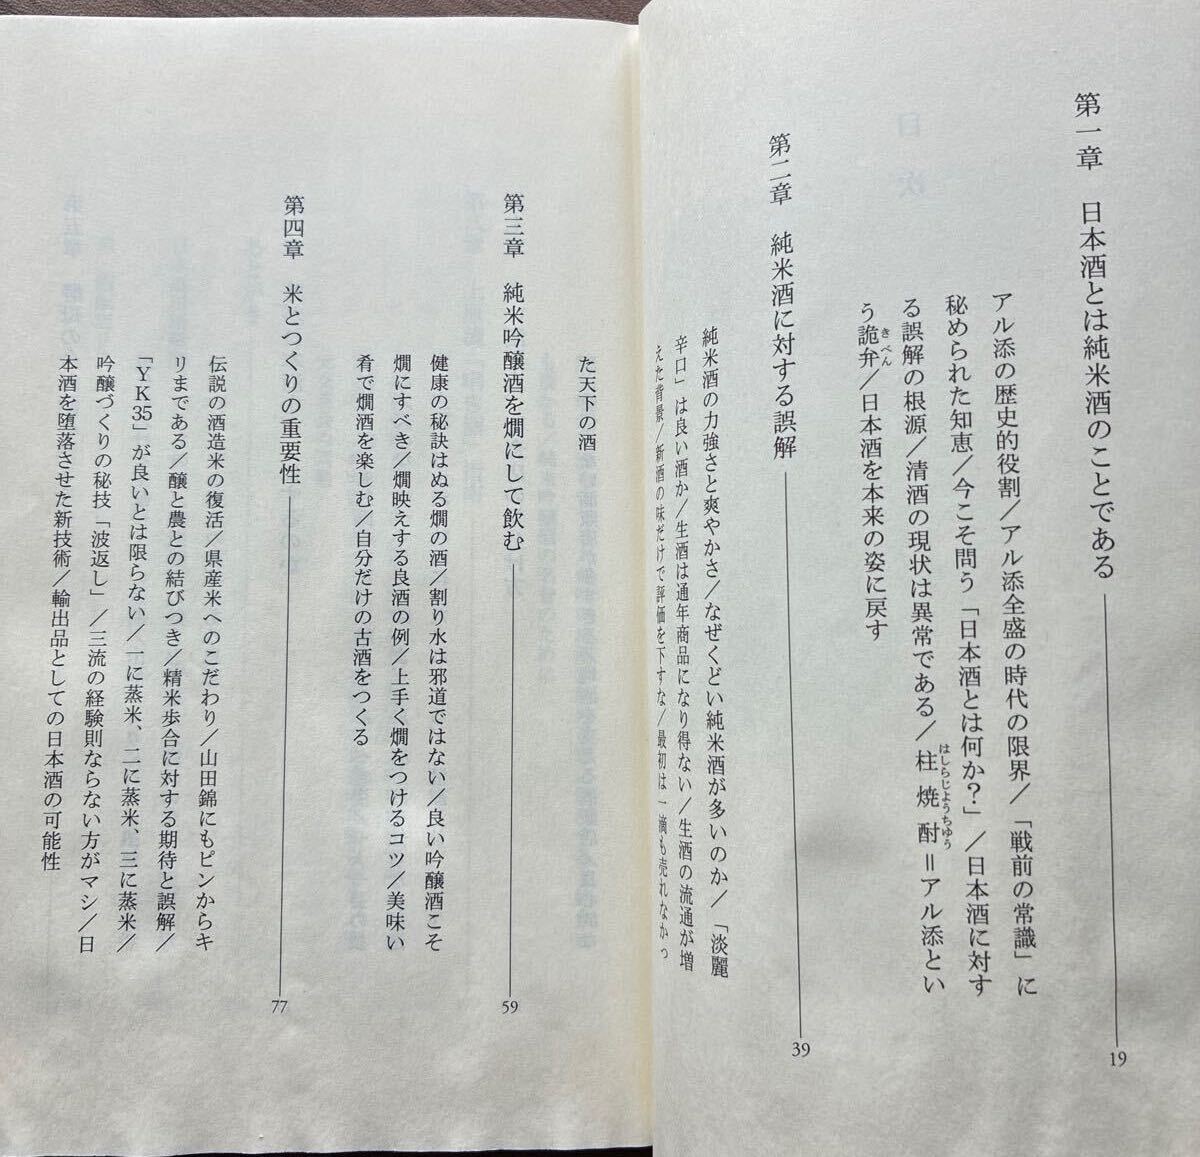 第一章　日本酒とは純米酒のことである 19
アル添の歴史的役割／アル添全盛の時代の限界／「戦前の常識」に
秘められた知恵／今こそ問う「日本酒とは何か？」／日本酒に対す
る誤解の根源／清酒の現状は異常である／柱焼酎＝アル添とい
はしらじようちゆう
う詭弁／日本酒を本来の姿に戻す
きべん
第二章　純米酒に対する誤解 39
純米酒の力強さと爽やかさ／なぜくどい純米酒が多いのか／「淡麗
辛口」は良い酒か／生酒は通年商品になり得ない／生酒の流通が増
えた背景／新酒の味だけで評価を下すな／最初は一滴も売れなかっ
た天下の酒
第三章　純米吟醸酒を燗にして飲む 59
健康の秘訣はぬる燗の酒／割り水は邪道ではない／良い吟醸酒こそ
燗にすべき／燗映えする良酒の例／上手く燗をつけるコツ／美味い
肴で燗酒を楽しむ／自分だけの古酒をつくる
第四章　米とつくりの重要性 77
伝説の酒造米の復活／県産米へのこだわり／山田錦にもピンからキ
リまである／醸と農との結びつき／精米歩合に対する期待と誤解／
「YK35」が良いとは限らない／一に蒸米、二に蒸米、三に蒸米／
吟醸づくりの秘技「波返し」／三流の経験則ならない方がマシ／日
本酒を堕落させた新技術／輸出品としての日本酒の可能性